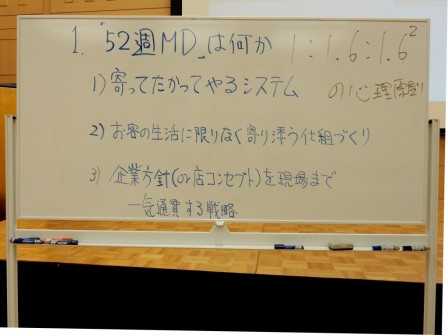 1. 「52週MD」は何か
1:1.6:1.6²
の心理原則
1) 寄ってたかってやるシステム
2) お客の生活に限りなく寄り添う仕組づくり
3) 企業方針(or店コンセプト)を現場まで
一気通貫する戦略